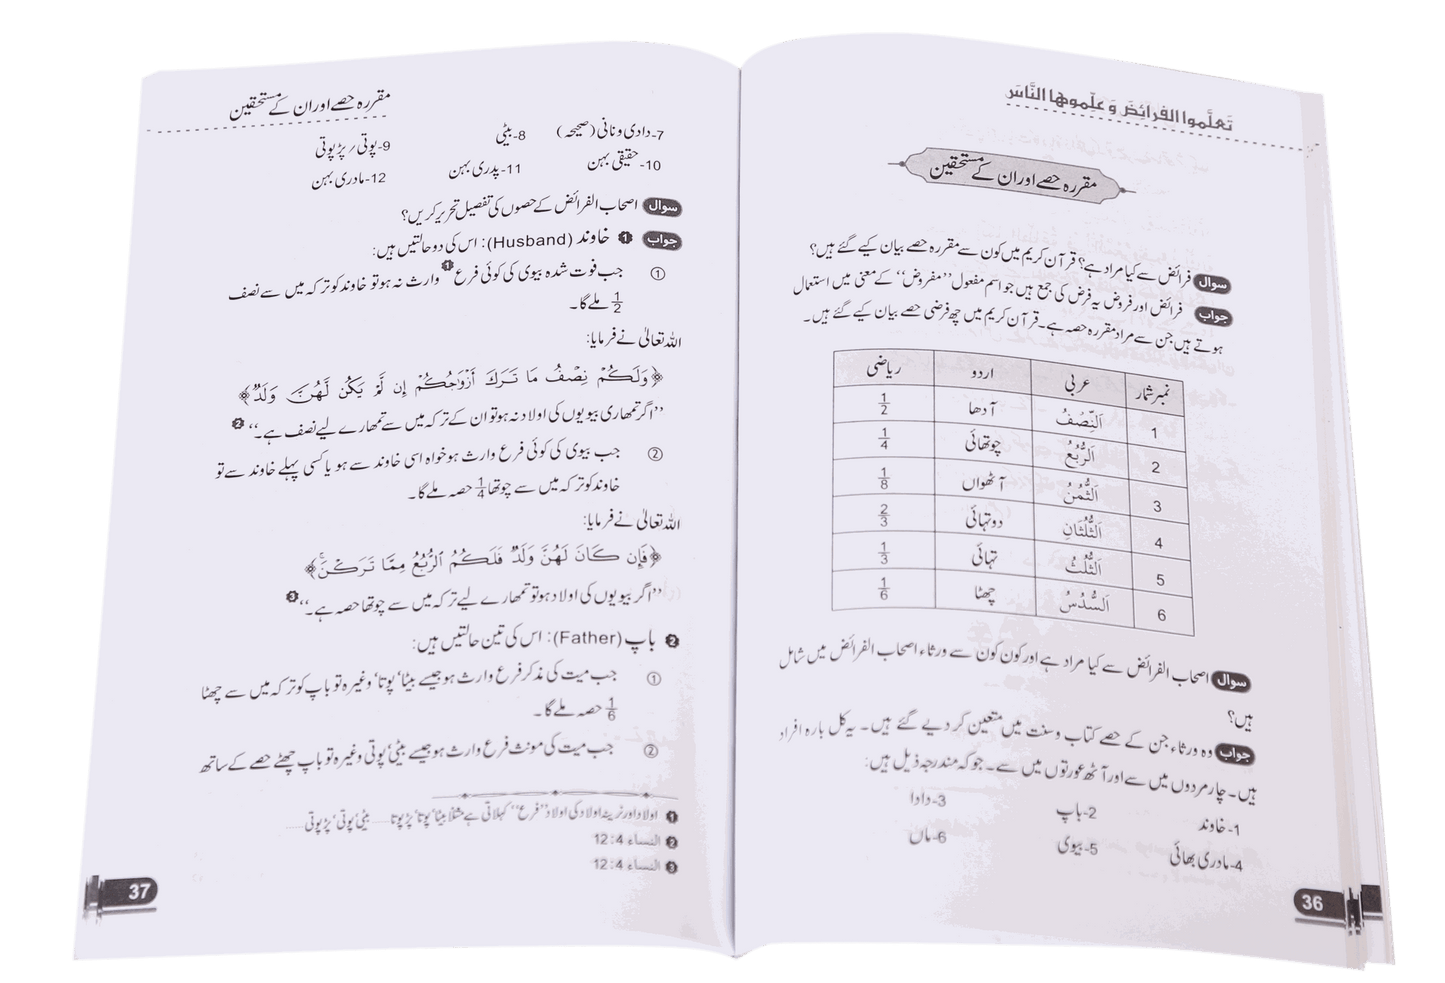 تَعلَّموا الفَرائِضَ وَ عَلِّموها النَّاسَ
مقررہ حصے اور ان کے مستحقین
سوال فرائض سے کیا مراد ہے؟ قرآن کریم میں کون سے مقررہ حصے بیان کیے گئے ہیں؟
جواب فرائض اور فروض یہ فرض کی جمع ہیں جو اسم مفعول ’’مفروض‘‘ کے معنی میں استعمال
ہوتے ہیں جن سے مراد مقررہ حصہ ہے۔ قرآن کریم میں چھ فرضی حصے بیان کیے گئے ہیں۔
نمبر شمار عربی اردو ریاضی
1 اَلنِّصْفُ آدھا 1/2
2 اَلرُّبُعُ چوتھائی 1/4
3 اَلثُّمُنُ آٹھواں 1/8
4 اَلثُّلُثَانِ دو تہائی 2/3
5 اَلثُّلُثُ تہائی 1/3
6 اَلسُّدُسُ چھٹا 1/6
سوال اصحاب الفرائض سے کیا مراد ہے اور کون کون سے ورثاء اصحاب الفرائض میں شامل
ہیں؟
جواب وہ ورثاء جن کے حصے کتاب و سنت میں متعین کر دیے گئے ہیں۔ یہ کل بارہ افراد
ہیں۔ چار مردوں میں سے اور آٹھ عورتوں میں سے۔ جو کہ مندرجہ ذیل ہیں:
1- خاوند 2- باپ 3- دادا
4- مادری بھائی 5- بیوی 6- ماں
36
مقررہ حصے اور ان کے مستحقین
7- دادی و نانی (صحیحہ) 8- بیٹی 9- پوتی / پڑپوتی
10- حقیقی بہن 11- پدری بہن 12- مادری بہن
سوال اصحاب الفرائض کے حصوں کی تفصیل تحریر کریں؟
جواب ❶ خاوند (Husband): اس کی دو حالتیں ہیں:
① جب فوت شدہ بیوی کی کوئی فرع❶ وارث نہ ہو تو خاوند کو ترکہ میں سے نصف
1/2 ملے گا۔
اللہ تعالیٰ نے فرمایا:
﴿وَلَكُمْ نِصْفُ مَا تَرَكَ أَزْوَاجُكُمْ إِن لَّمْ يَكُنْ لَّهُنَّ وَلَدٌ﴾
’’اگر تمہاری بیویوں کی اولاد نہ ہو تو ان کے ترکہ میں سے تمہارے لیے نصف ہے۔‘‘❷
② جب بیوی کی کوئی فرع وارث ہو خواہ اسی خاوند سے ہو یا کسی پہلے خاوند سے تو
خاوند کو ترکہ میں سے چوتھا 1/4 حصہ ملے گا۔
اللہ تعالیٰ نے فرمایا:
﴿فَإِن كَانَ لَهُنَّ وَلَدٌ فَلَكُمُ الرُّبُعُ مِمَّا تَرَكْنَ﴾
’’اگر بیویوں کی اولاد ہو تو تمہارے لیے ترکہ میں سے چوتھا حصہ ہے۔‘‘❸
❷ باپ (Father): اس کی تین حالتیں ہیں:
① جب میت کی مذکر فرع وارث ہو جیسے بیٹا‘ پوتا‘ وغیرہ تو باپ کو ترکہ میں سے چھٹا
1/6 حصہ ملے گا۔
② جب میت کی مونث فرع وارث ہو جیسے بیٹی‘ پوتی وغیرہ تو باپ چھٹے حصے کے ساتھ
❶ اولاد اور نرینہ اولاد کی اولاد ’’فرع‘‘ کہلاتی ہے مثلاً بیٹا‘ پوتا‘ پڑپوتا..... بیٹی‘ پوتی‘ پڑپوتی.....
❷ النساء 4:12
❸ النساء 4:12
37